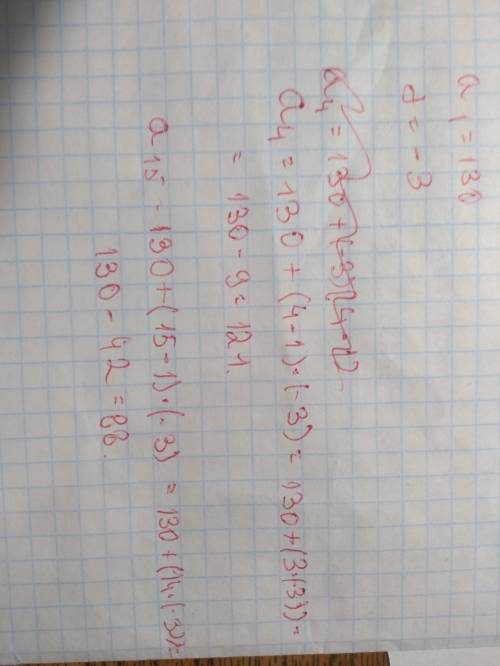 a₁ = 130
d = -3
a₄ = 130 + (4-1)·(-3) = 130 + (3·(-3)) =
= 130 - 9 = 121.
a 15 - 130 + (15-1)·(-3) = 130 + (14·(-3)) =
130 - 42 = 88.